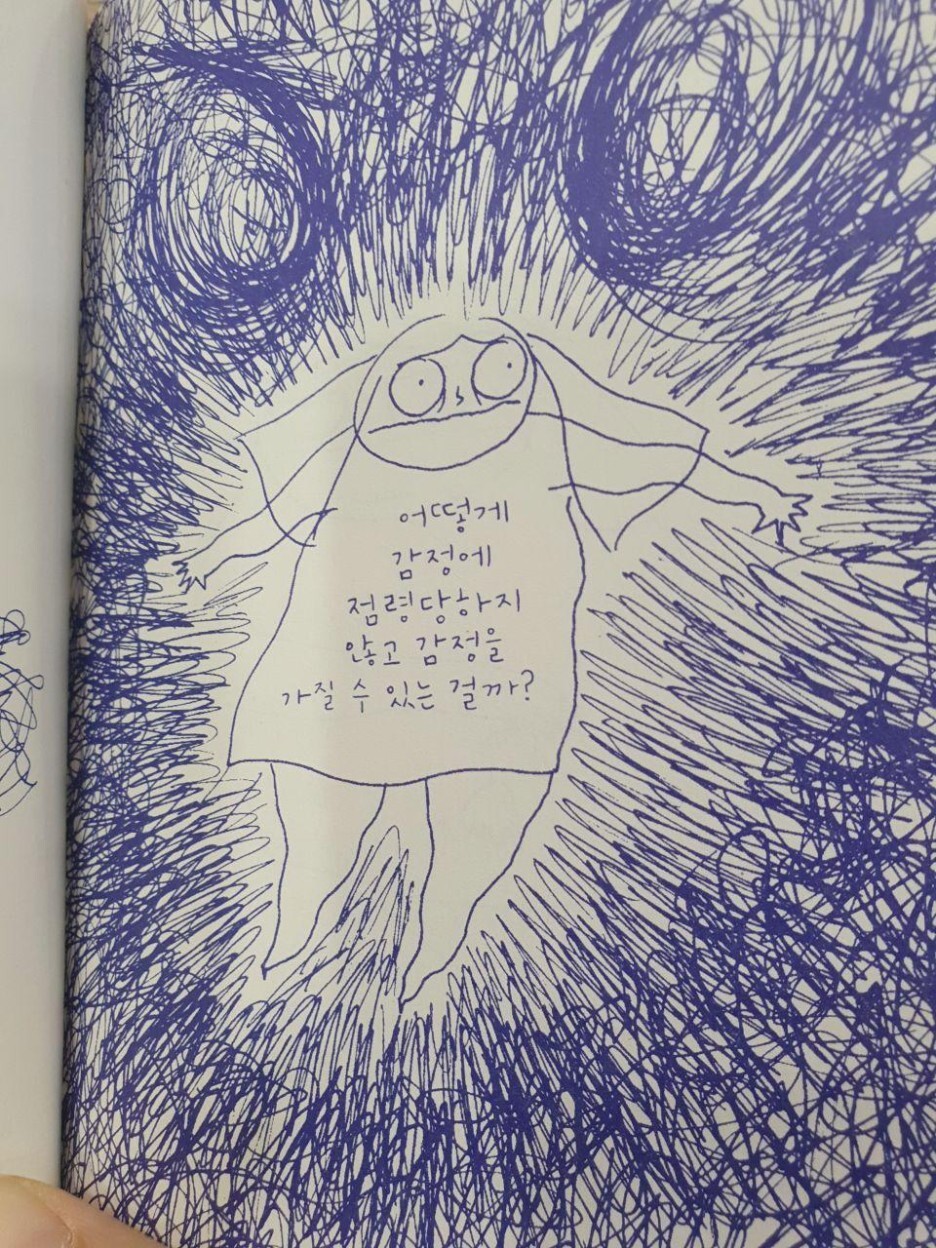 어떻게
감정에
점령당하지
않고 감정을
가질 수 있는 걸까?